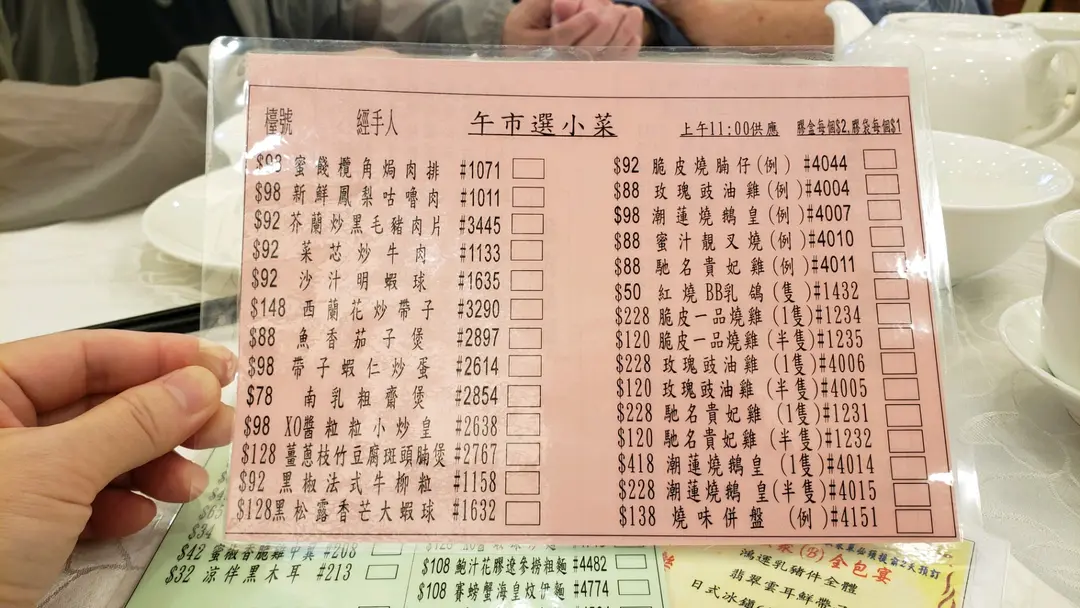 檯號 經手人 午市選小菜 上午11:00供應 膠盒每個$2,膠袋每個$1
$93 蜜餞欖角焗肉排 #1071
$98 新鮮鳳梨咕嚕肉 #1011
$92 芥蘭炒黑毛豬肉片 #3445
$92 菜芯炒牛肉 #1133
$92 沙汁明蝦球 #1635
$148 西蘭花炒帶子 #3290
$88 魚香茄子煲 #2897
$98 帶子蝦仁炒蛋 #2614
$78 南乳粗齋煲 #2854
$98 XO醬粒粒小炒皇 #2638
$128 薑蔥枝竹豆腐斑頭腩煲 #2767
$92 黑椒法式牛柳粒 #1158
$128黑松露香芒大蝦球 #1632
$92 脆皮燒腩仔(例) #4044
$88 玫瑰豉油雞(例) #4004
$98 潮蓮燒鵝皇(例) #4007
$88 蜜汁靚叉燒(例) #4010
$88 馳名貴妃雞(例) #4011
$50 紅燒BB乳鴿(隻)#1432
$228 脆皮一品燒雞(1隻)#1234
$120 脆皮一品燒雞(半隻)#1235
$228 玫瑰豉油雞(1隻)#4006
$120 玫瑰豉油雞(半隻)#4005
$228 馳名貴妃雞(1隻)#1231
$120 馳名貴妃雞(半隻)#1232
$418 潮蓮燒鵝皇(1隻)#4014
$228 潮蓮燒鵝皇(半隻)#4015
$138 燒味併盤(例)#4151
$34
$42 蜜椒香脆雞中翼 #208
$32 涼伴黑木耳 #213
#4482
$108 鮑汁花膠遼參撈粗麵
$108 賽螃蟹海皇炆伊麵 #4774
(B)全包宴
鴻運乳豬件全體
翡翠雲耳鮮帶子
日式冰鎮